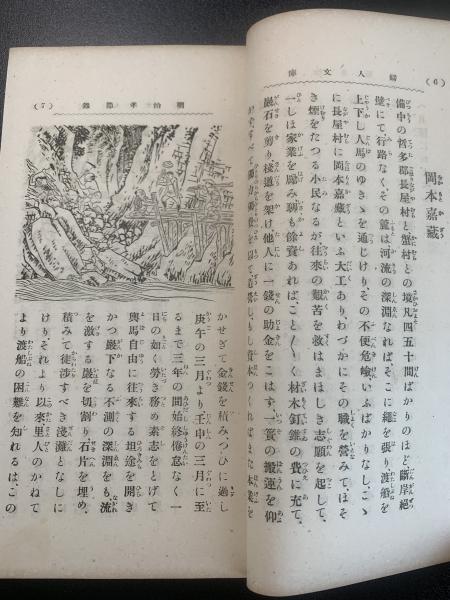 (６) 婦人文庫
岡本嘉藏
備中の哲多郡長屋村と蟹村との境凡四五十間ばかりのほど斷岸絶
壁にて行路なく、その麓は河流の深淵なればそこに繩を張り、渡船を
上下し人馬のゆきゝを通じけり、その不便危嶮いふばかりなし、こゝ
に長屋村に岡本嘉藏といふ大工あり、わづかにその職を營みて、ほそ
き煙をたつる小民なるが、往來の艱苦を救はまほしき志願を起して、
一しほ家業を勵み聊も餘資あれば、こと〴〵く材木釘鎹の費に充て、
巖石を剪り棧道を架け、他人に一錢の助金をこはず、一簣の搬運を仰
がずすべて
もし資本つくればまた本業を
明治孝節錄 (７)
かせぎて金錢を積み、つひに過し
庚午の三月より壬申の三月に至
るまで三年の間始終倦怠なく一
日の如く勞き務め素志をとげて
輿馬自由に往來する坦途を開き
かつ巖下なる不測の深淵をも、流
を激する巖を切割り石片を埋め、
積みて徒渉すべき淺灘となしに
けり、それより以來里人のかねて
より渡船の困難を知れるは、この